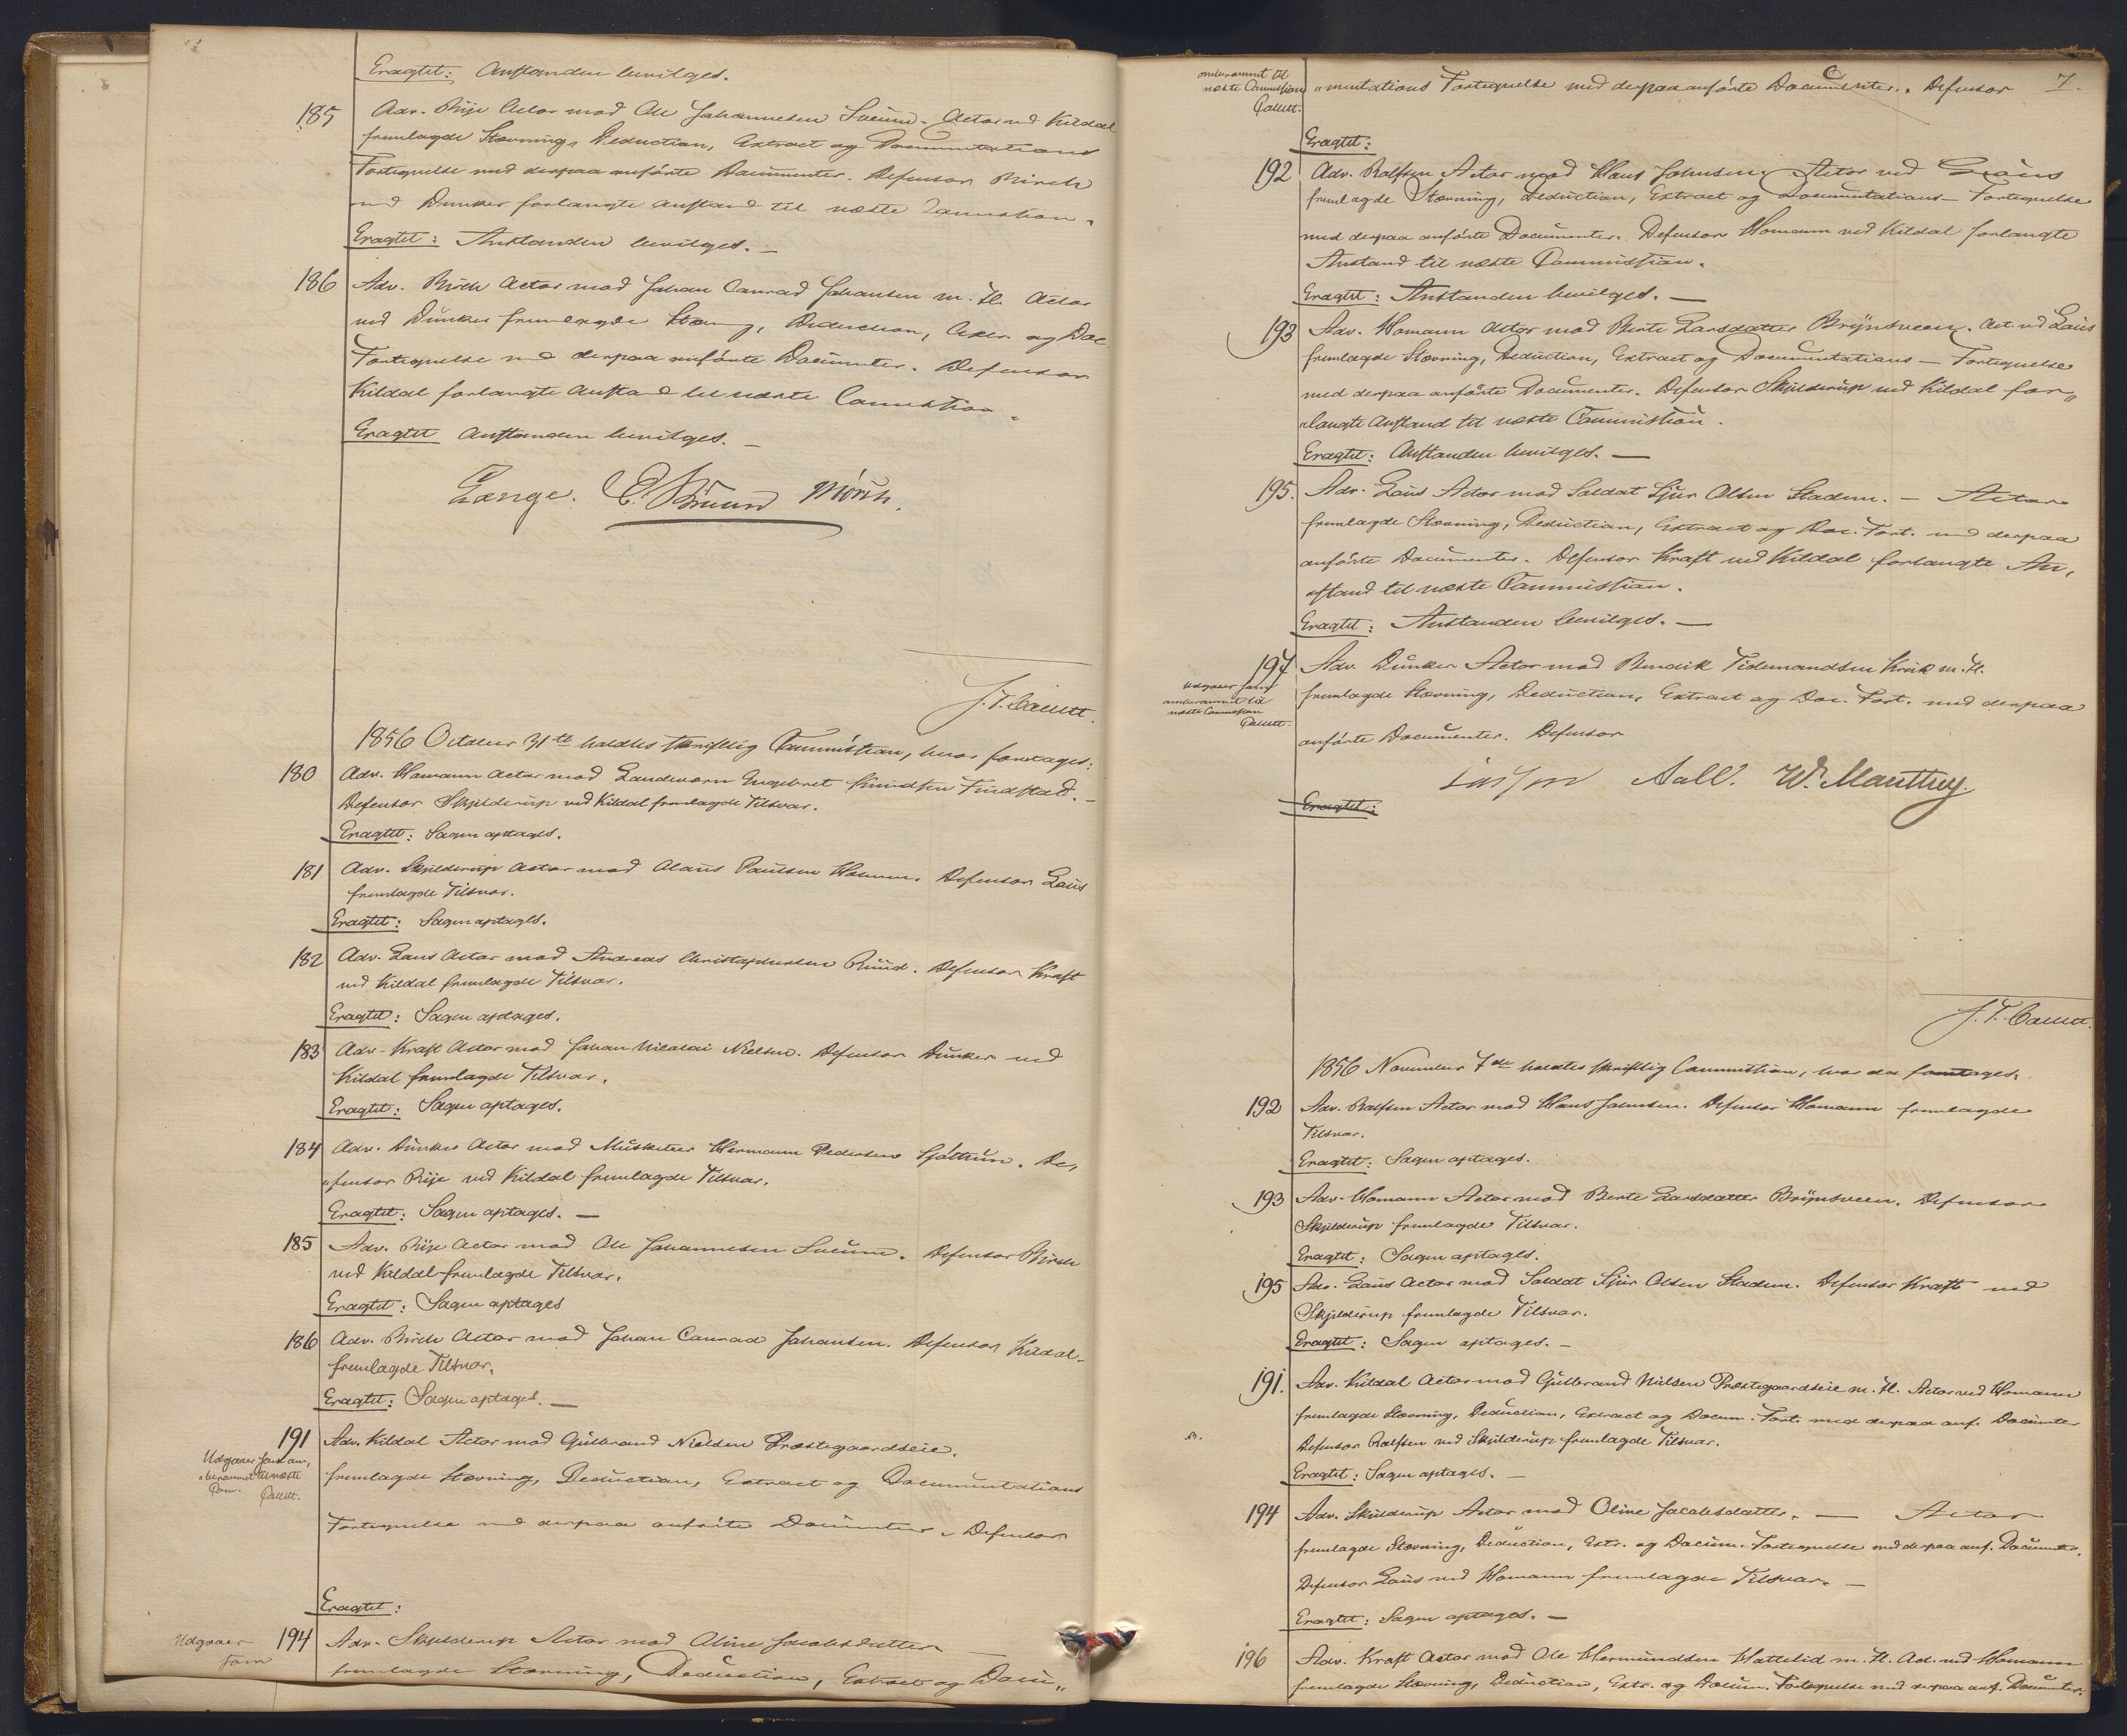 Eragtet: Anstanden bevilges.
185 Adv. Rije Actor mod Ole Johannesen Sveum. Actor ved Kildal
fremlagde Stævning, Deduction, Extract og Documentations
Fortegnelse med derpaa anførte Documenter. Defensor Birch
ved Dunker forlangte Anstand til næste Commission.
Eragtet: Anstanden bevilges. —
186 Adv. Birch Actor mod Johan Conrad Johansen m. Fl. Actor
ved Dunker fremlagde Stævning, Deduction, Extr. og Doc.
Fortegnelse med derpaa anførte Documenter. Defensor
Kildal forlangte Anstand til næste Commission.
Eragtet Anstanden bevilges. —
Lange. C. Bruun Mörch.
J. F. Collett.
1856 October 31te holdtes skriftlig Commission, hvor foretages:
180 Adv. Homann Actor mod Landværn Engebret Knudsen Findstad. —
Defensor Skjelderup ved Kildal fremlagde Tilsvar.
Eragtet: Sagen optages.
181 Adv. Skjelderup Actor mod Olaus Paulsen Holmen. Defensor Laus
fremlagde Tilsvar.
Eragtet: Sagen optages.
182 Adv. Laus Actor mod Andreas Christophersen Ruud. Defensor Kraft
ved Kildal fremlagde Tilsvar.
Eragtet: Sagen optages.
183 Adv. Kraft Actor mod Johan Nicolai Nielsen. Defensor Dunker ved
Kildal fremlagde Tilsvar.
Eragtet: Sagen optages.
184 Adv. Dunker Actor mod Musketeer Hermann Pedersen . De,
„fensor Rije ved Kildal fremlagde Tilsvar.
Eragtet: Sagen optages. —
185 Adv. Rije Actor mod Ole Johannesen Sveum. Defensor Birch
ved Kildal fremlagde Tilsvar.
Eragtet: Sagen optages
186 Adv. Birch Actor mod Johan Conrad Johansen. Defensor Kildal
fremlagde Tilsvar.
Eragtet: Sagen optages. —
191 Adv. Kildal Actor mod Gulbrand Nielsen Præstegaardseie.
Udgaaer som om,
„berammet til næste
Com. Collett.
fremlagde Stævning, Deduction, Extract og Documentations
Fortegnelse med derpaa anførte Documenter. Defensor
Eragtet:
194 Adv. Skjelderup Actor mod Oline Jacobsdatter. —
Udgaaer
som
fremlagde Stævning, Deduction, Extract og Docu„
7.
omberammet til
næste Commission
Collett.
„mentations Fortegnelse med derpaa anførte Documenter. Defensor
Eragtet:
192 Adv. Rolfsen Actor mod Hans Johnsen. Actor ved Laus
fremlagde Stævning, Deduction, Extract og Documentations- Fortegnelse
med derpaa anførte Documenter. Defensor Homann ved Kildal forlangte
Anstand til næste Commission.
Eragtet: Anstanden bevilges. —
193 Adv. Homann Actor mod Berte Larsdatter Brynsveen. Act. ved Laus
fremlagde Stævning, Deduction, Extract og Documentations — Fortegnelse
med derpaa anførte Documenter. Defensor Skjelderup ved Kildal for„
„langte Anstand til næste Commission.
Eragtet: Anstanden bevilges. —
195. Adv. Laus Actor mod Soldat Sjur Olsen Stadem. — Actor
fremlagde Stævning, Deduction, Extract og Doc. Fort. med derpaa
anførte Documenter. Defensor Kraft ved Kildal forlangte An,
„stand til næste Commission.
Eragtet: Anstanden bevilges. —
197 Adv. Dunker Actor mod Bendik Tidemandsen Krik m. Fl.
Udgaaer som
omberammet til
næste Commission
Collett.
fremlagde Stævning, Deduction, Extract og Doc. Fort. med derpaa
anførte Documenter. Defensor
Aall. W. Manthey.
Eragtet:
J. F. Collett.
1856 November 7de holdtes skriftlig Commission, hvor da foretages:
192 Adv. Rolfsen Actor mod Hans Johnsen. Defensor Homann fremlagde
Tilsvar.
Eragtet: Sagen optages.
193 Adv. Homann Actor mod Berte Larsdatter Brynsveen. Defensor
Skjelderup fremlagde Tilsvar.
Eragtet: Sagen optages.
195 Adv. Laus Actor mod Soldat Sjur Olsen Stadem. Defensor Kraft ved
Skjelderup fremlagde Tilsvar.
Eragtet: Sagen optages. —
191. Adv. Kildal Actor mod Gulbrand Nielsen Præstegaardseie m. Fl. Actor ved Homann
fremlagde Stævning, Deduction, Extract og Docum. Fort. med derpaa anf. Documenter
Defensor Rolfsen ved Skjelderup fremlagde Tilsvar.
Eragtet: Sagen optages. —
194 Adv. Skjelderup Actor mod Oline Jacobsdatter. — Actor
fremlagde Stævning, Deduction, Extr. og Docum. Fortegnelse med derpaa anf. Documenter.
Defensor Laus ved Homann fremlagde Tilsvar. —
Eragtet: Sagen optages. —
196 Adv. Kraft Actor mod Ole Hermundsen Hattelid m. Fl. Act. ved Homann
fremlagde Stævning, Deduction, Extr. og Docum. Fortegnelse med derpaa anf. Documenter.